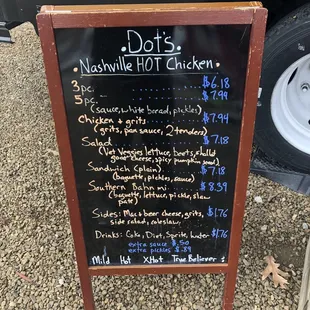 Dot's
Nashville HOT Chicken
3 pc. $6.18
5 pc. $7.99
(sauce, white bread, pickles)
Chicken + grits $7.94
(grits, pan sauce, 2 tenders)
Salad $7.18
(Vet Veggies lettuce, beets, pickled
goat cheese, spicy pumpkin seed)
Sandwich (plain) $7.18
(baguette, pickles, sauce)
Southern Bahn mi $8.39
(baguette, lettuce, pickle, slaw
pate)
Sides: Mac & beer cheese, grits, $1.76
side salad, coleslaw
Drinks: Coke, Diet, Sprite, Water $1.76
extra sauce $.50
extra pickles $.89
Mild Hot XHot True Believer